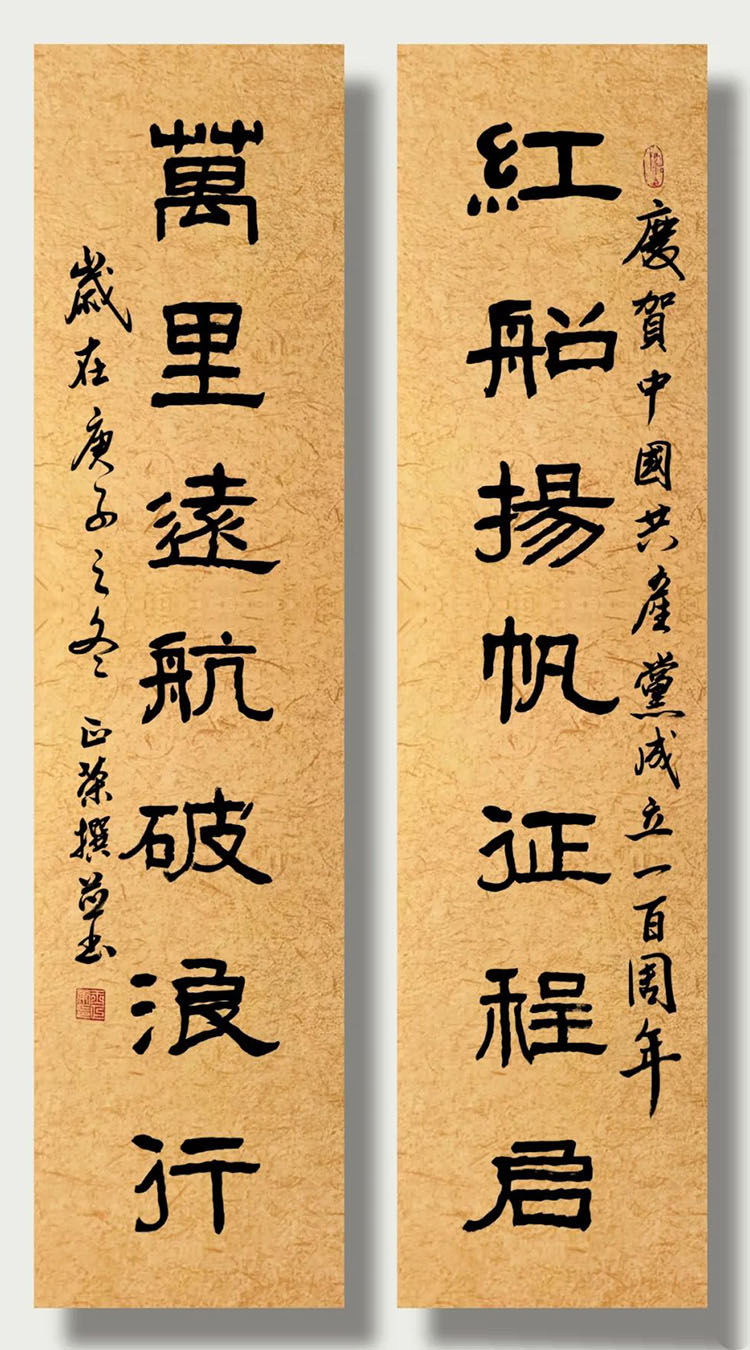 慶賀中國共産黨成立一百周年
紅船揚帆征程启
萬里遠航破浪行
歲在庚子之冬 正榮撰並书